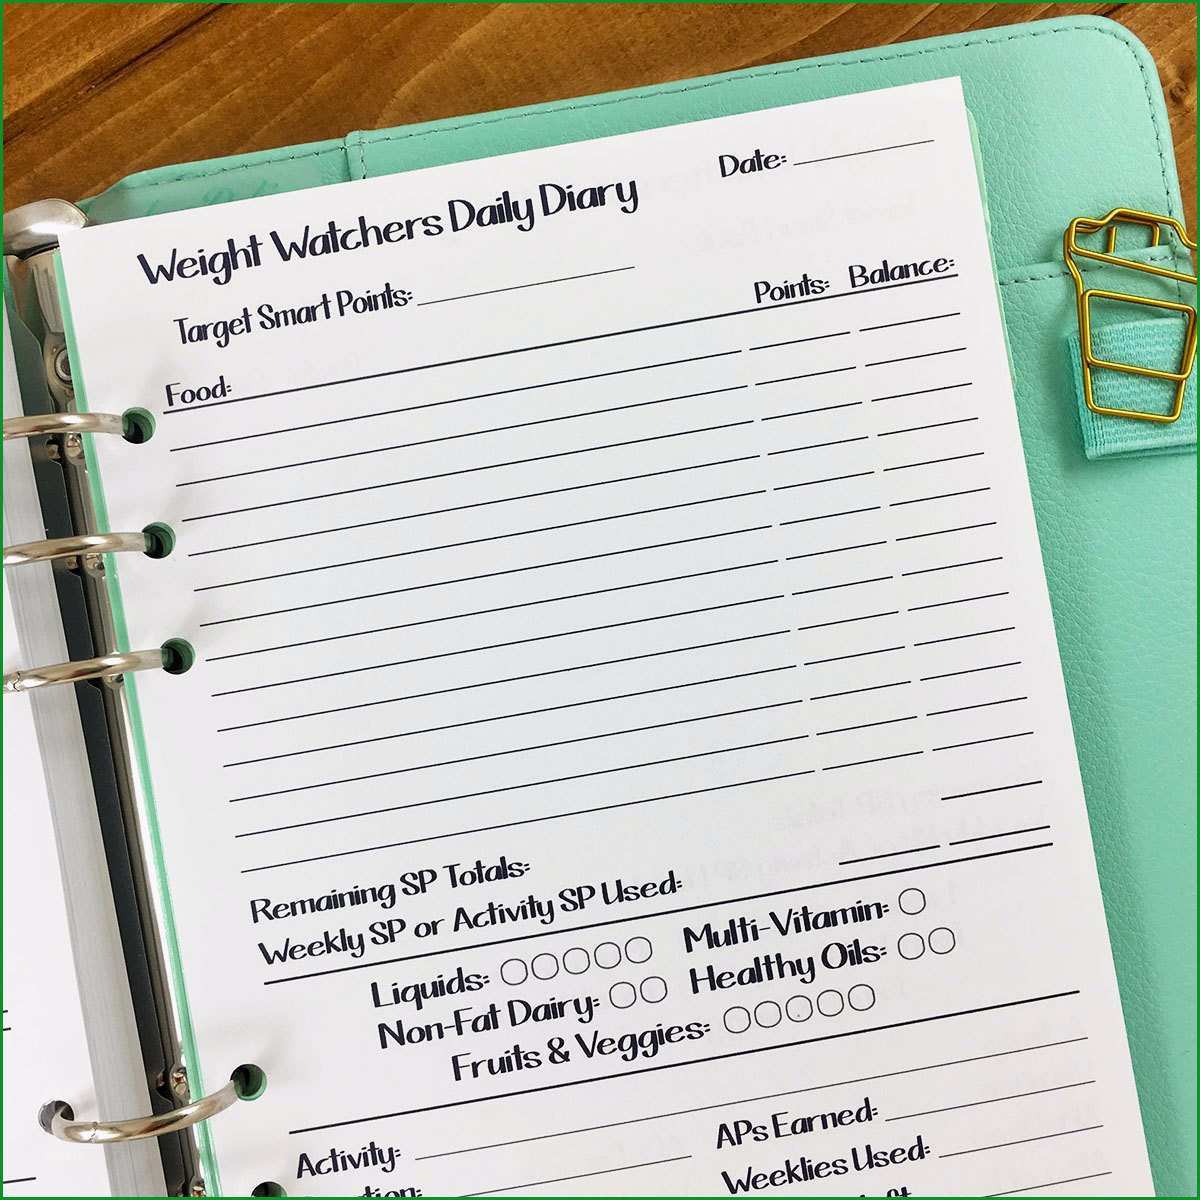 Date:
Weight Watchers Daily Diary
Target Smart Points:
Points: Balance:
Food:
Remaining SP Totals:
Weekly SP or Activity SP Used:
Liquids: Multi-Vitamin:
Non-Fat Dairy: Healthy Oils:
Fruits & Veggies:
Activity: APs Earned:
Weeklies Used: